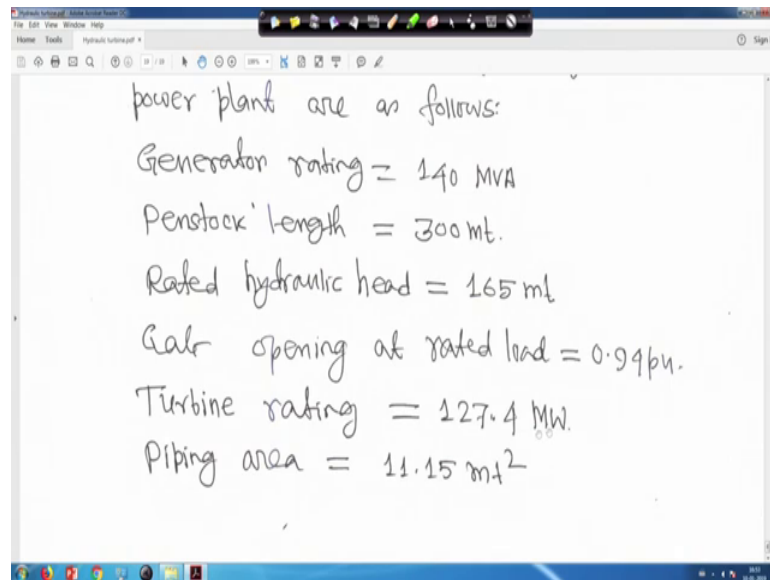 Hydraulic turbine.pdf - Adobe Acrobat Reader DC
File Edit View Window Help
Home Tools Hydraulic turbine.pdf × Sign
power plant are as follows:
Generator rating = 140 MVA
Penstock length = 300 mt.
Rated hydraulic head = 165 mt
Gate opening at rated load = 0.94 pu.
Turbine rating = 127.4 MW.
Piping area = 11.15 mt²